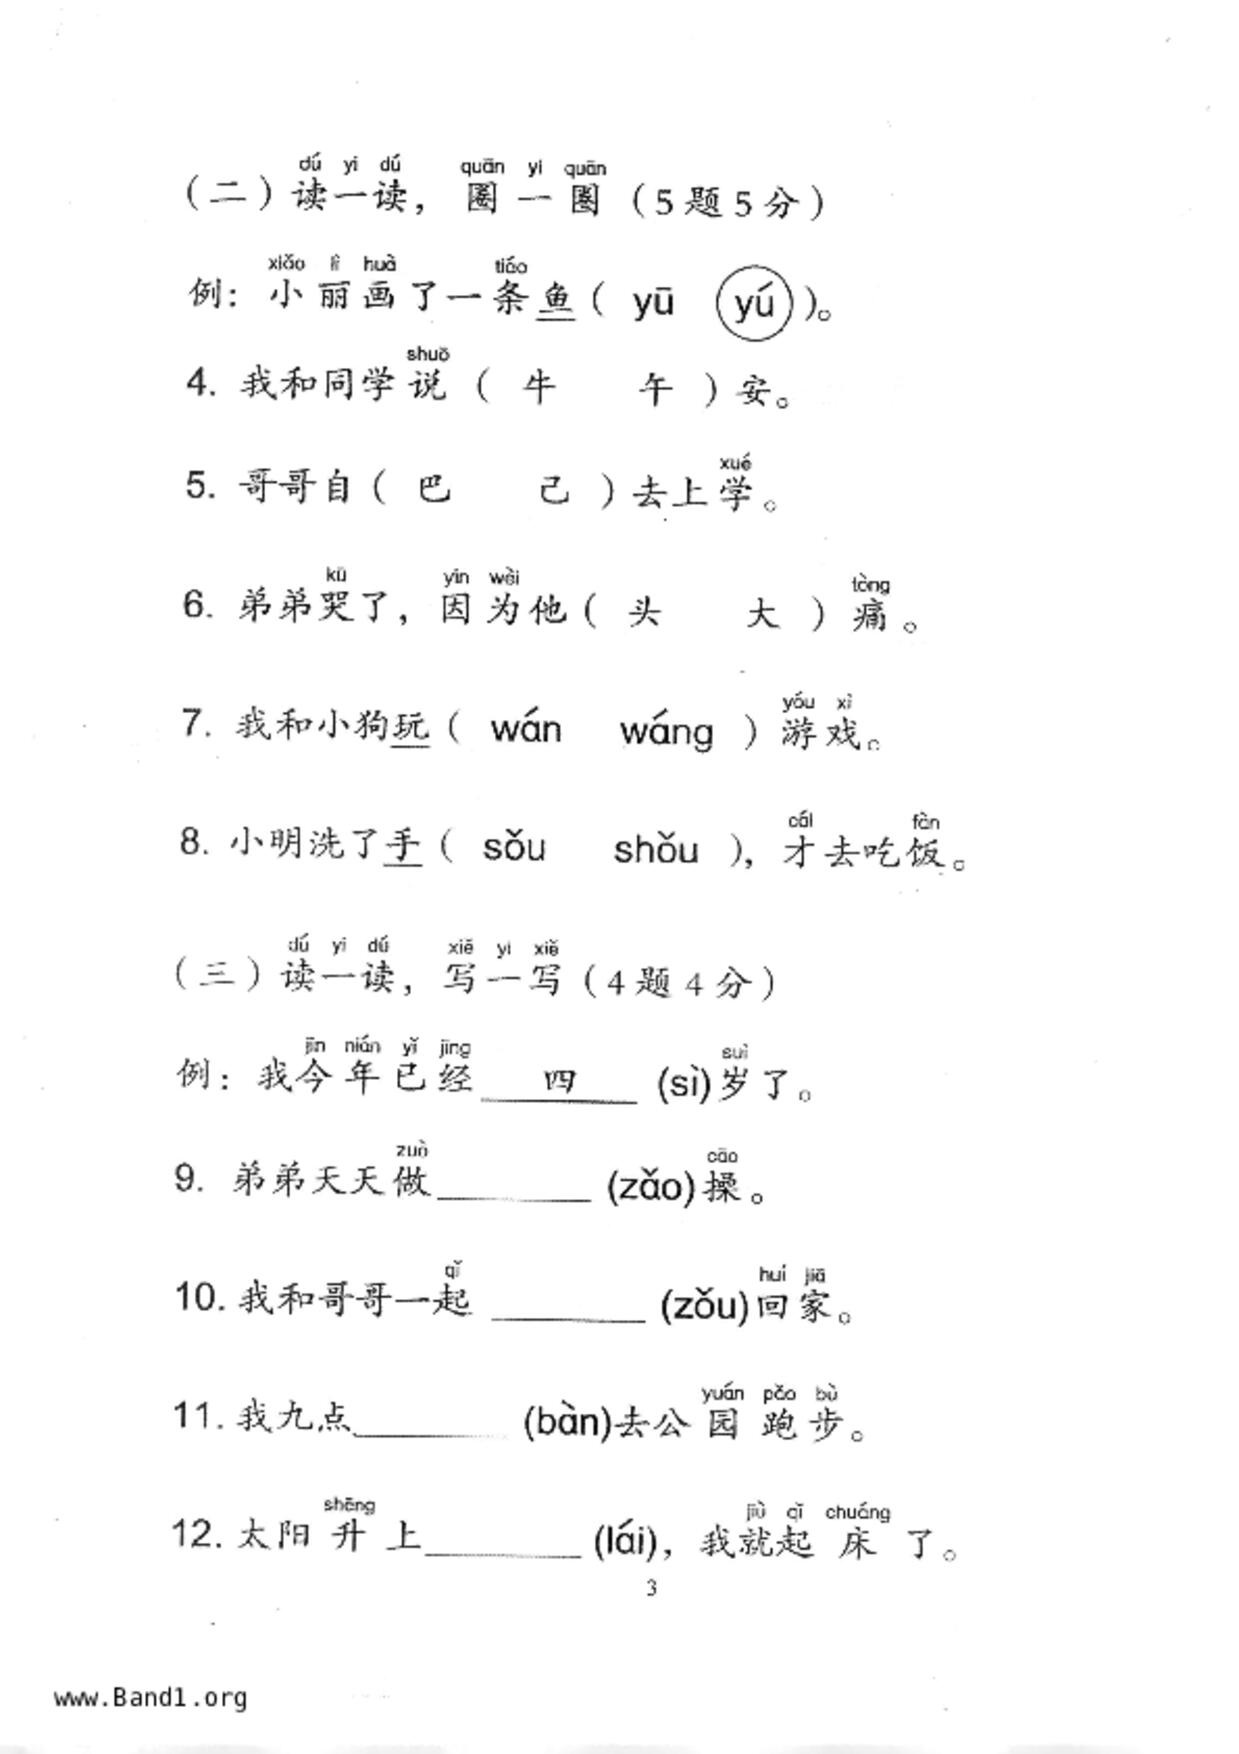 dú yi dú quān yi quān
（二）读一读，圈一圈（5题5分）
xiǎo lì huà tiáo
例：小丽画了一条鱼（ yū yú ）。
shuō
4. 我和同学说（ 牛 午 ）安。
xué
5. 哥哥自（ 巴 己 ）去上学。
kū yīn wèi tòng
6. 弟弟哭了，因为他（ 头 大 ）痛。
yóu xì
7. 我和小狗玩（ wán wáng ）游戏。
cái fàn
8. 小明洗了手（ sǒu shǒu ），才去吃饭。
dú yi dú xiě yi xiě
（三）读一读，写一写（4题4分）
jīn nián yǐ jīng suì
例：我今年已经 四 (sì)岁了。
zuò cāo
9. 弟弟天天做________ (zǎo)操。
qǐ huí jiā
10. 我和哥哥一起 ________ (zǒu)回家。
yuán pǎo bù
11. 我九点________ (bàn)去公园跑步。
shēng jiù qǐ chuáng
12. 太阳升上________ (lái)，我就起床了。
3
www.Band1.org